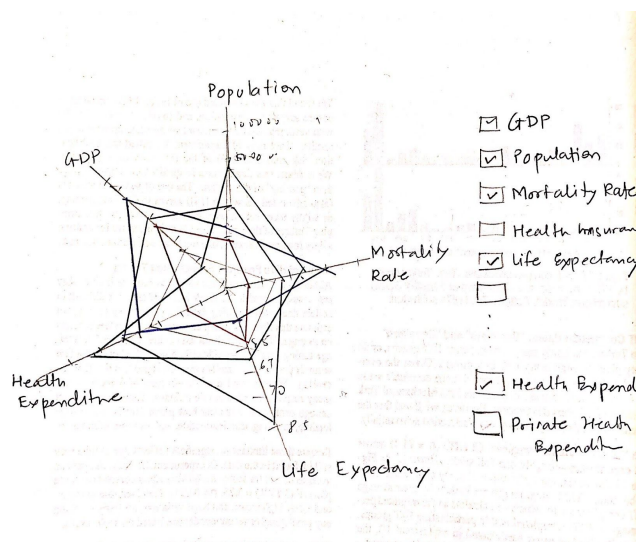 Population
100000
50000
GDP
Mortality
Rate
Health
Expenditure
5.5
6.7
70
85
Life Expectancy
GDP
Population
Mortality Rate
Health Insuran
Life Expectancy
Health Expend
Private Health
Expendit